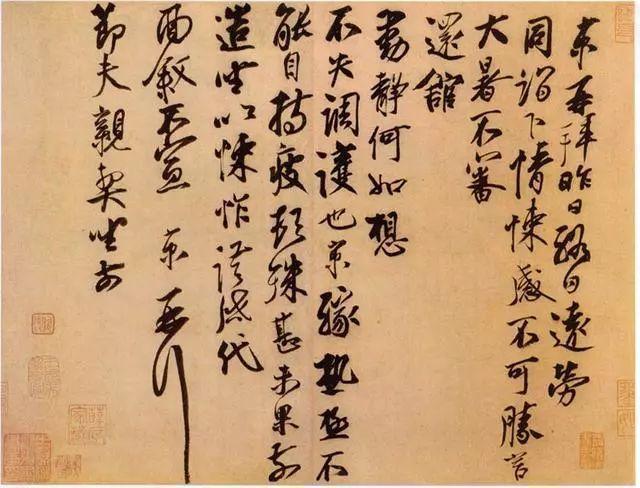 京再拜昨日終日遠勞
同詣下情悚感不可勝言
大暑不審
還館
動靜何如想
不失調護也京緣熱極不
能自持疲頓殊甚未果前
造坐次悚怍謹啓代
面敘不宣 京再拜
節夫親契坐前